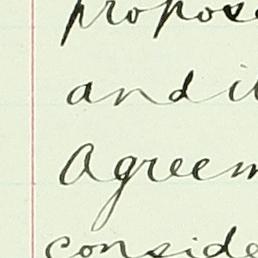 propos
and i
Agreem
conside